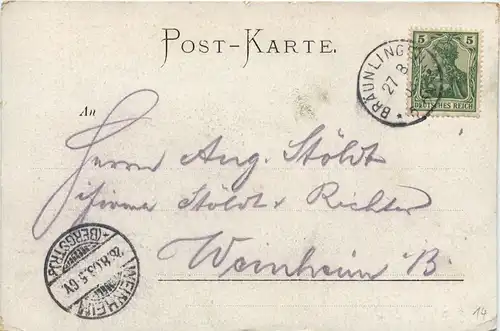 POST-KARTE.
BRÄUNLINGEN
27 8
5 5
DEUTSCHES REICH
An
Herrn Aug. Stöldt
Firma Stöldt & Richter
Weinheim B.
WEINHEIM
(BERGSTR.)
14